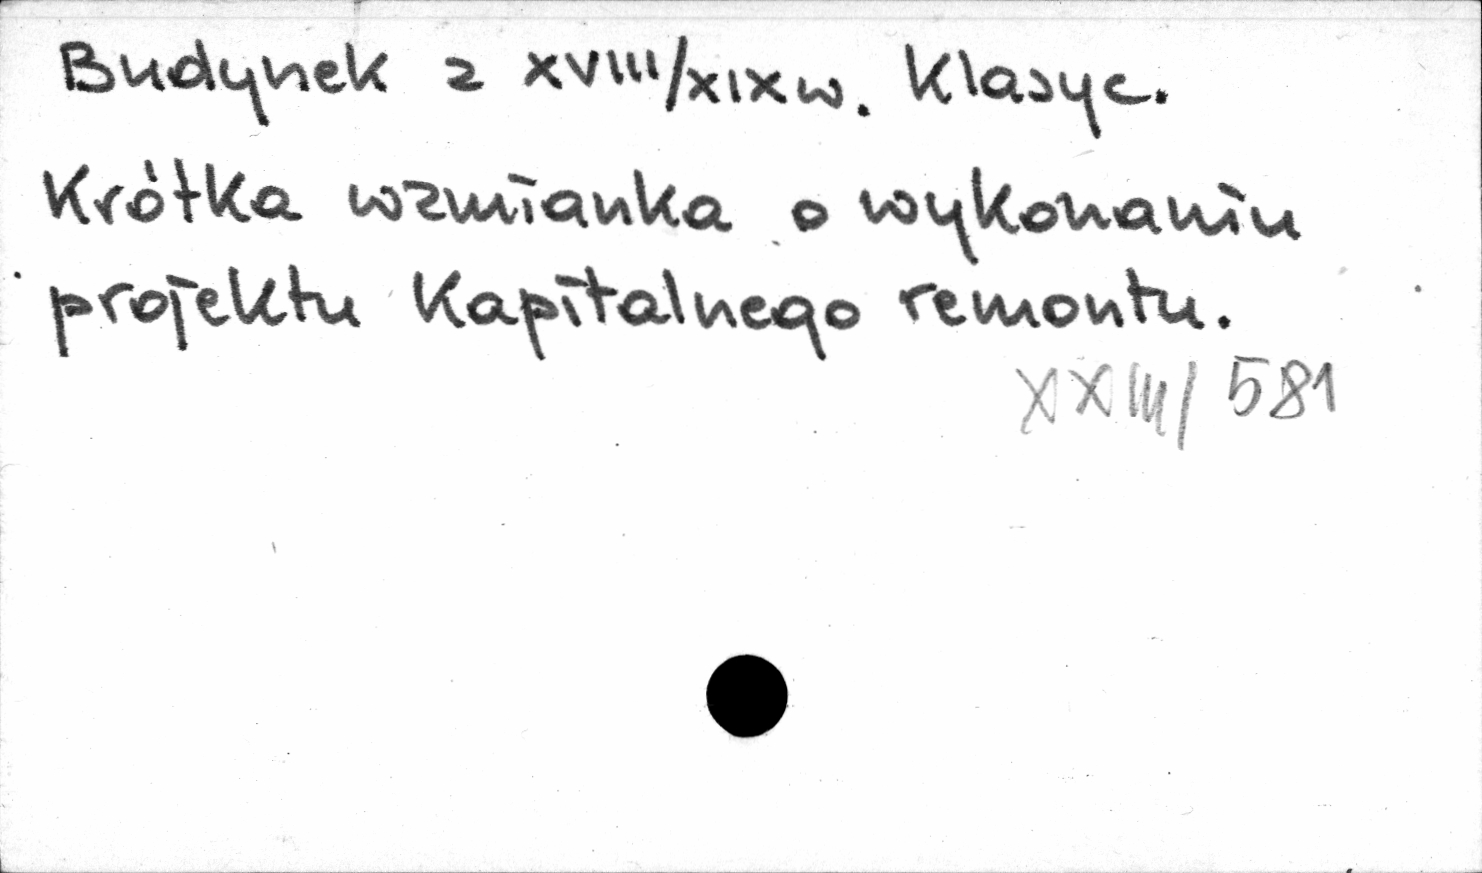 Budynek z XVIII/XIX w. Klasyc.
Krótka wzmianka o wykonaniu
projektu kapitalnego remontu.
XXIII/581